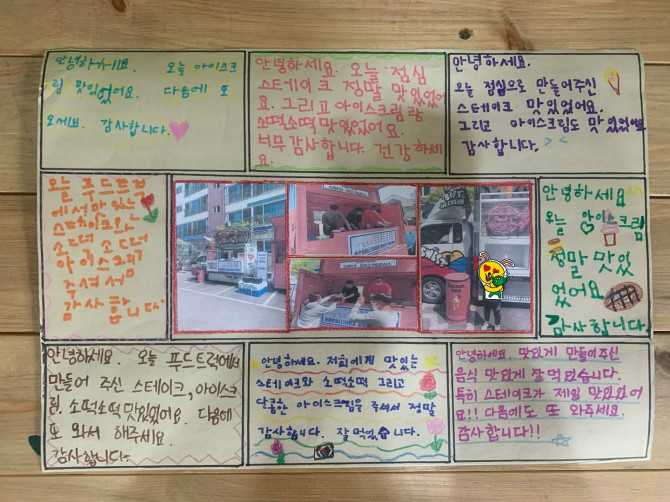 안녕하세요. 오늘 아이스크
림 맛있었어요. 다음에 또
오세요. 감사합니다.
안녕하세요. 오늘 점심
스테이크 정말 맛있었어
요. 그리고 아이스크림랑
소떡소떡 맛있었어요.
너무 감사합니다. 건강하세
요.
안녕하세요.
오늘 점심으로 만들어주신
스테이크 맛있었어요.
그리고 아이스크림도 맛있었어요
감사합니다.
오늘 푸드트럭
에서 맛있는
스테이크와
소떡소떡
아이스크림
주셔서
감사합니다
안녕하세요
오늘 아이스크림
정말 맛있
었어요
감사합니다.
안녕하세요. 오늘 푸드트럭에서
만들어 주신 스테이크, 아이스크
림, 소떡소떡 맛있었어요. 다음에
또 와서 해주세요.
감사합니다.
안녕하세요. 저희에게 맛있는
스테이크와 소떡소떡 그리고
달콤한 아이스크림을 주셔서 정말
감사합니다. 잘 먹었습니다.
안녕하세요. 맛있게 만들어주신
음식 맛있게 잘 먹었습니다.
특히 스테이크가 제일 맛있었어
요!! 다음에도 또 와주세요.
감사합니다!!